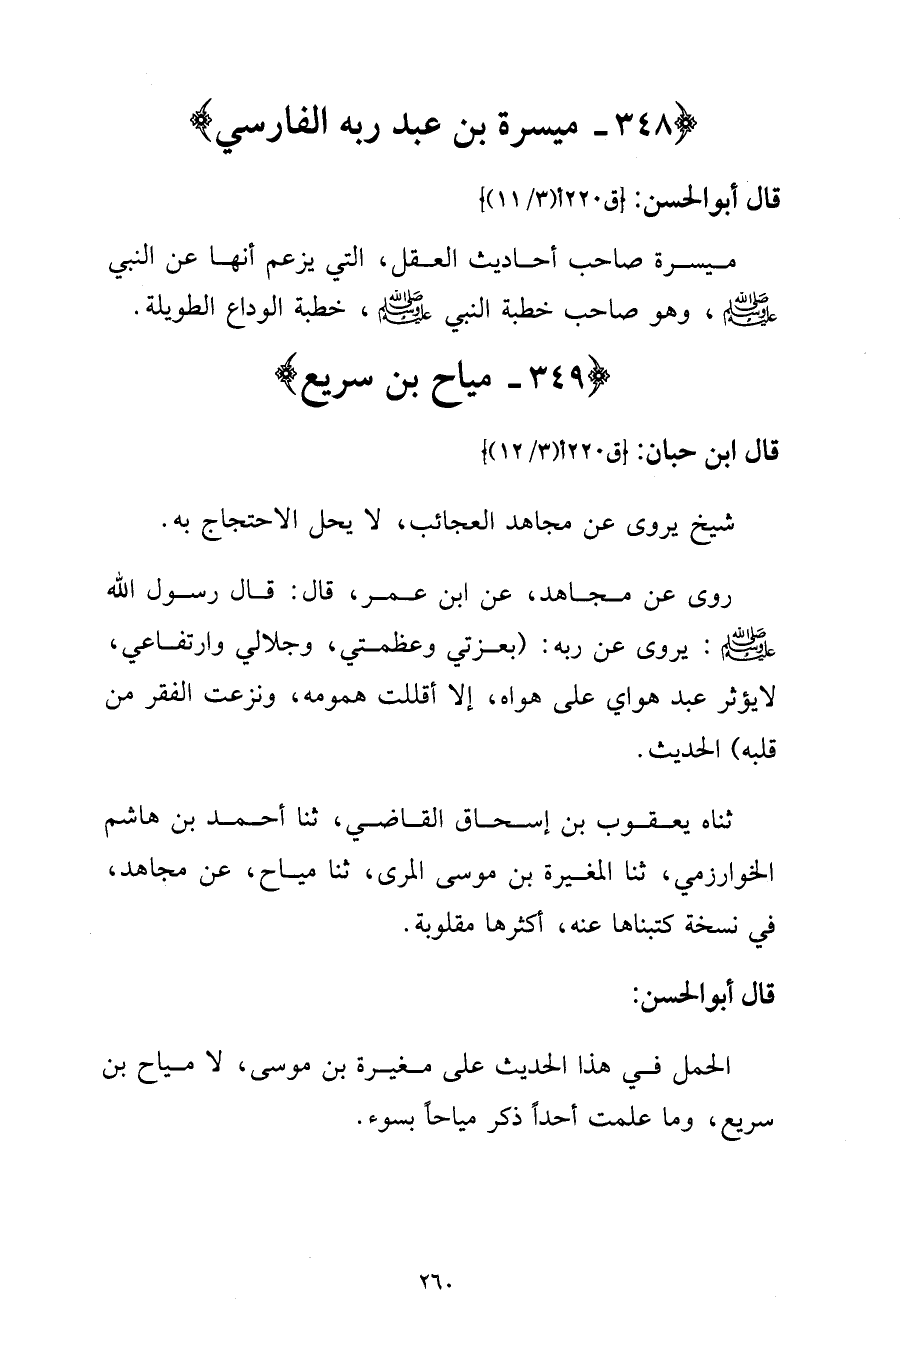 ﴿٣٤٨ - ميسرة بن عبد ربه الفارسي﴾
قال أبوالحسن: {ق٢٢٠أ(٣/ ١١)}
ميسرة صاحب أحاديث العقل، التي يزعم أنها عن النبي
ﷺ ، وهو صاحب خطبة النبي ﷺ ، خطبة الوداع الطويلة.
﴿٣٤٩ - مياح بن سريع﴾
قال ابن حبان: {ق٢٢٠أ(٣/ ١٢)}
شيخ يروى عن مجاهد العجائب، لا يحل الاحتجاج به.
روى عن مجاهد، عن ابن عمر، قال: قال رسول الله
ﷺ : يروى عن ربه: (بعزتي وعظمتي، وجلالي وارتفاعي،
لايؤثر عبد هواي على هواه، إلا أقللت همومه، ونزعت الفقر من
قلبه) الحديث.
ثناه يعقوب بن إسحاق القاضي، ثنا أحمد بن هاشم
الخوارزمي، ثنا المغيرة بن موسى المرى، ثنا مياح، عن مجاهد،
في نسخة كتبناها عنه، أكثرها مقلوبة.
قال أبوالحسن:
الحمل في هذا الحديث على مغيرة بن موسى، لا مياح بن
سريع، وما علمت أحداً ذكر مياحاً بسوء.
٢٦٠